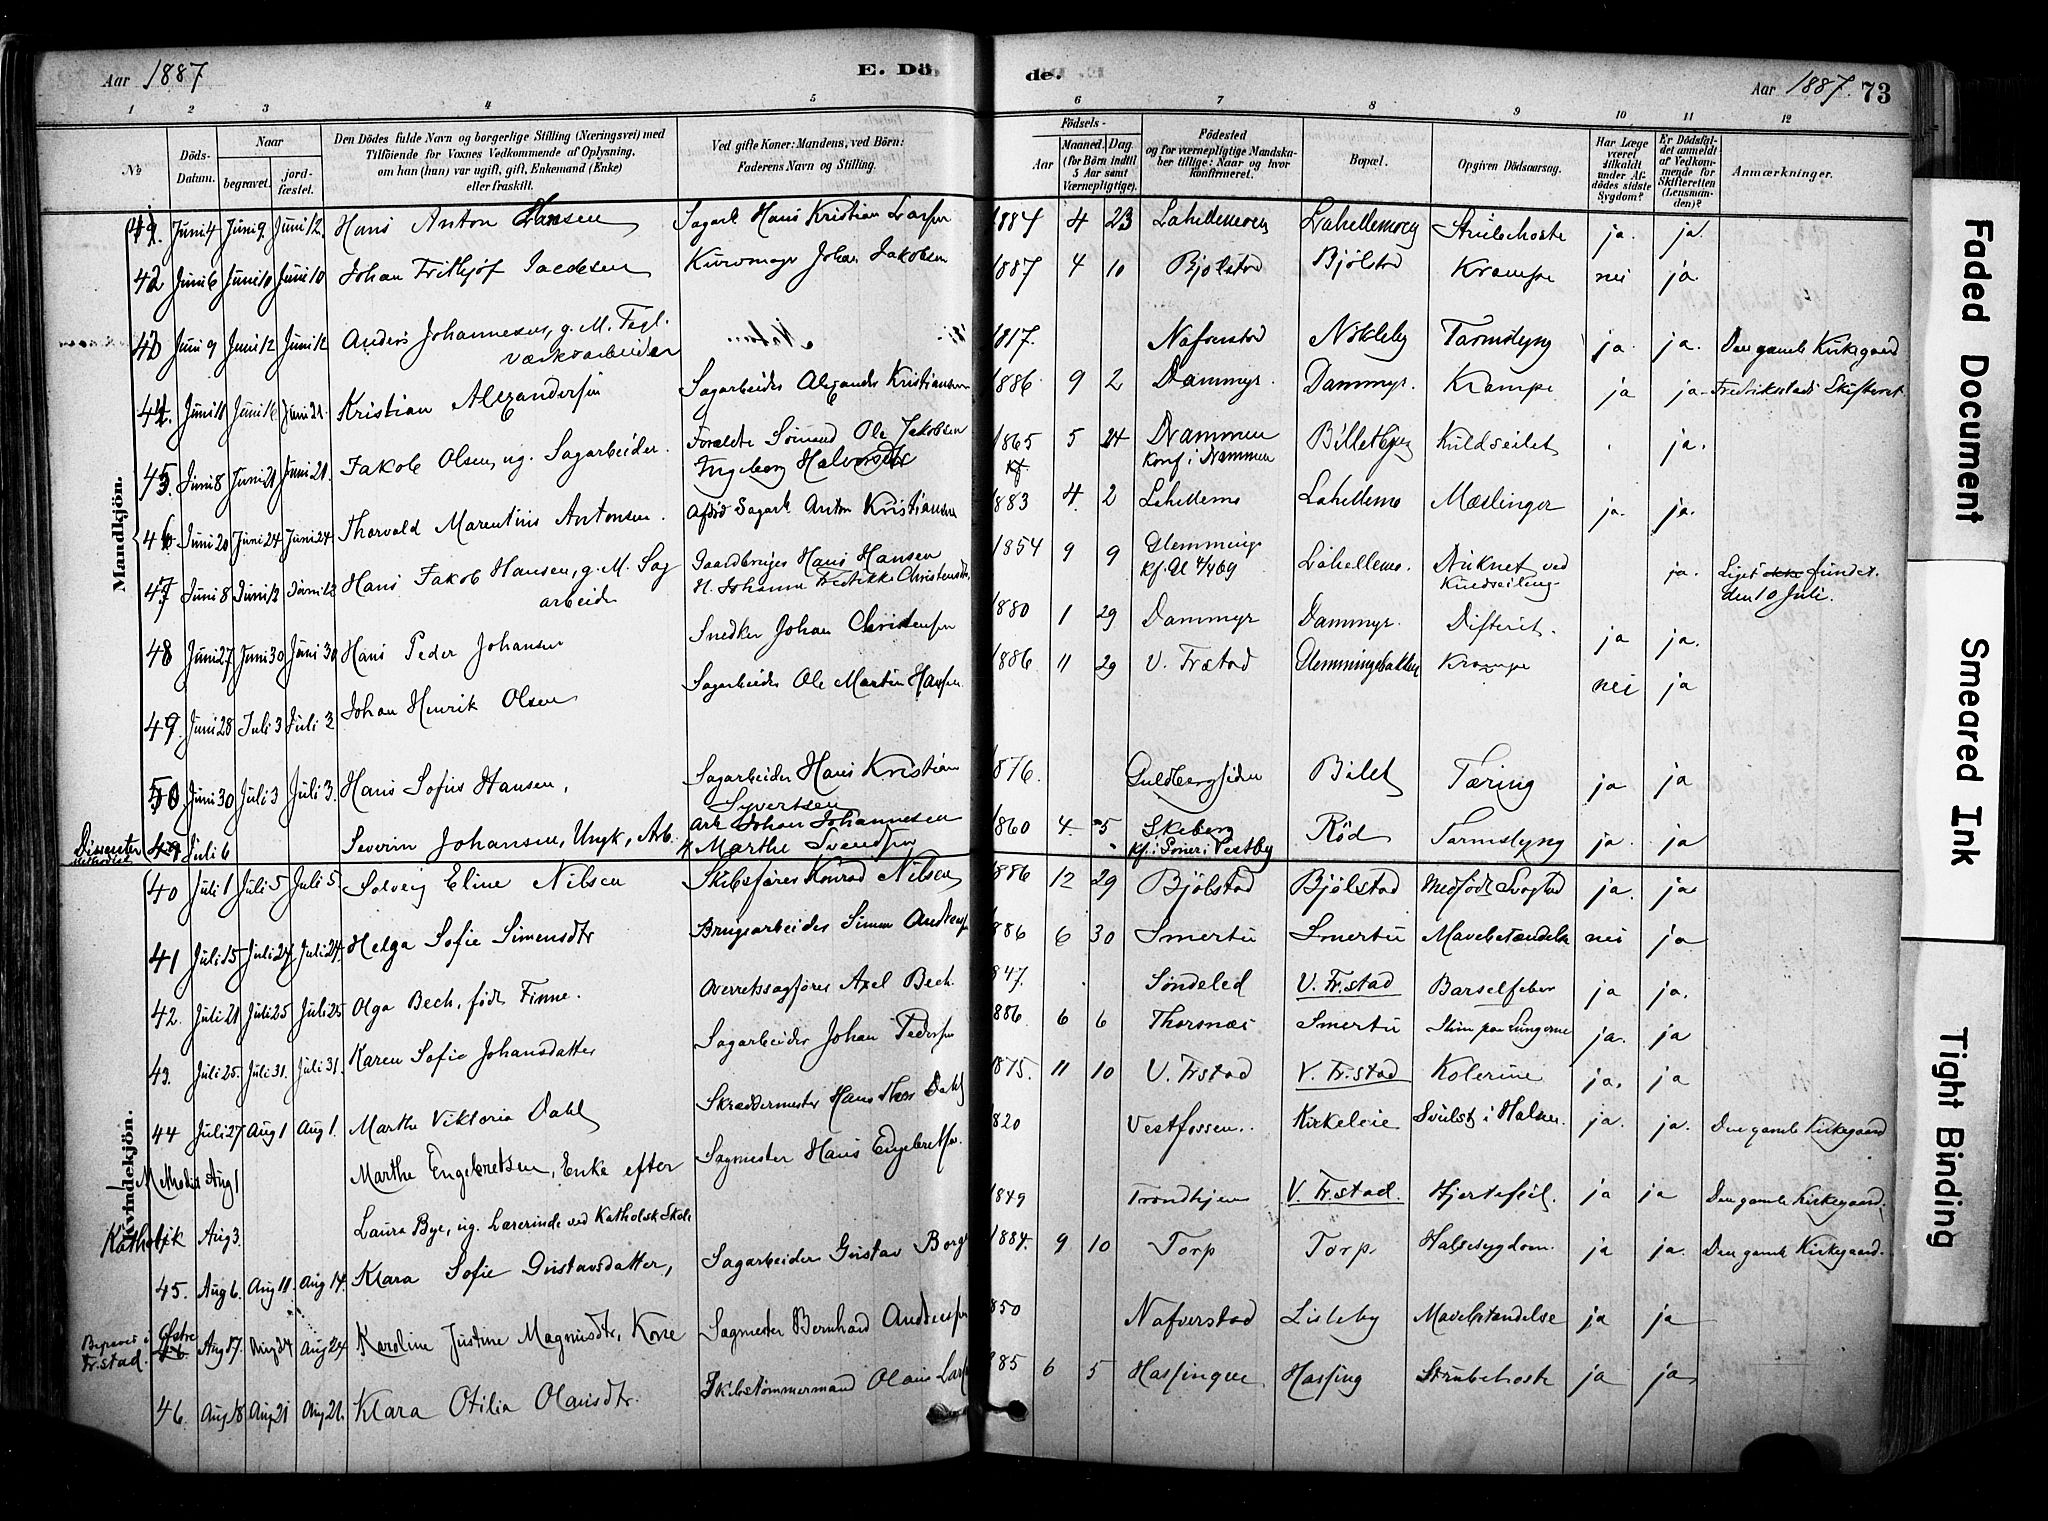 Aar 1887
E. Dö- de.
Aar 1887. 73
1 2 3 4 5 6 7 8 9 10 11 12
No
Döds-Datum.
Naar
begravet.
jord-fæstet.
Den Dödes fulde Navn og borgerlige Stilling (Næringsvei) med
Tilföiende for Voxnes Vedkommende af Oplysning,
om han (hun) var ugift, gift, Enkemand (Enke)
eller fraskilt.
Ved gifte Koner: Mandens, ved Börn:
Faderens Navn og Stilling.
Födsels-
Aar
Maaned. Dag.
(for Börn indtil
5 Aar samt
Værnepligtige).
Födested
og for værnepligtige Mandska-
ber tillige: Naar og hvor
konfirmeret.
Bopæl.
Opgiven Dödsaarsag.
Har Læge
været
tilkaldt
under Af-
dödes sidste
Sygdom?
Er Dödsfal-
det anmeldt
af Vedkom-
mende for
Skifteretten
(Lensman-
den)?
Anmærkninger.
Mandkjön.
41. Juni 4 Juni 9. Juni 12. Hans Anton Hansen Sagarb. Hans Kristian Larsen 1887 4 23 Lahellemoen Lahellemoen Strubehoste ja. ja.
42 Juni 6 Juni 10 Juni 10 Johan Frithjof Jacobsen Kurvmager Johan Jakobsen 1887 4 10 Bjølstad Bjølstad Krampe nei ja
43 Juni 9 Juni 12 Juni 12 Anders Johannesen, g. M. Tegl-
værksarbeider 1817. Nafverstad Nökleby Tarmslyng ja ja. Den gamle Kirkegaard
44. Juni 11 Juni 16 Juni 21. Kristian Alexandersen Sagarbeider Alexander Kristiansen 1886 9 2 Dammyr. Dammyr. Krampe ja ja. Fredriksstads Skifteret
45 Juni 8 Juni 21 Juni 21. Jakob Olsen, ug. Sagarbeider. Forældre Sömand Ole Jakobsen
Ingeborg Halvorsdtr 1865 5 24 Drammen
konf i Drammen Billetbyen Kuldseilet ja.
46 Juni 20 Juni 24 Juni 24 Thorvald Marentius Antonsen. Afdöd Sagarb. Anton Kristiansen 1883 4. 2 Lahellemo Lahellemo Mæslinger ja. ja.
47 Juni 8 Juni 12 Juni 12 Hans Jakob Hansen, g. M. Sag
arbeider Gaardbruger Hans Hansen
H. Johanne Fredrikke Christensdtr. 1854 9 9 Glemminge
Lahellemo. Druknet ved
Kuldseiling ja. Liget fundet
den 10 Juli.
48 Juni 27 Juni 30 Juni 30 Hans Peder Johansen Snedker Johan Christensen 1880 1 29 Dammyr Dammyr. Difterit. ja ja.
49 Juni 28 Juli 3 Juli 3 Johan Henrik Olsen Sagarbeider Ole Martin Hansen. 1886 11 29 V. Fr.stad Glemmingebakken Krampe nei ja
50 Juni 30 Juli 3 Juli 3. Hans Sofus Hansen, Sagarbeider Hans Kristian
Syvertsen 1876. Guldbergsiden Bilet Tæring ja ja
Dissenter
Methodist 49 Juli 6 Severin Johansen, Ungk, Arb. Arb Johan Johannesen
H Marthe Svendsen 1860 4. 5 Skeberg
Kf. i Soner i Vestby Röd Tarmslyng ja. ja
Kvindekjön.
40 Juli 1 Juli 5 Juli 5 Solveig Eline Nilsen Skibsförer Konrad Nilsen 1886 12 29 Bjølstad Bjølstad Medfödt Svaghed ja. ja
41 Juli 15 Juli 24 Juli 24. Helga Sofie Simensdtr Brugsarbeider Simen Andersen 886 6 30 Smertu Smertu Mavebetændelse nei ja
42. Juli 21 Juli 25 Juli 25 Olga Bech, föd Finne. Overretssagförer Axel Bech. 847. Söndeled V. Fr.stad Barselfeber ja ja.
43. Juli 25. Juli 31. Juli 31. Karen Sofie Johansdatter Sagarbeider Johan Pedersen 886. 6 6 Thorsnæs Smertu Slim paa Lungerne ja. ja
44 Juli 27 Aug 1 Aug 1. Marthe Viktoria Dahl Skræddermester Hans Thor Dahl 1875. 11 10 V. Frstad V. Fr.stad Kolerine ja. ja
Methodist Aug 1 Marthe Engebretsen, Enke efter Sagmester Hans Engebretsen. 820 Vestfossen. Kirkeleie Svulst i Halsen. ja. ja. Den gamle Kirkegaard
Katholik Aug 3. Laura Bye, ug. Lærerinde ved Katholsk Skole 1849 Trondhjem V. Fr.stad. Hjertefeil. ja ja Den gamle Kirkegaard.
45. Aug 6. Aug 11. Aug 14. Klara Sofie Gustavsdatter, Sagarbeider Gustav Borge 1884. 9 10 Torp Torp Halsesygdom. ja ja. Den gamle Kirkegaard.
Begravet i
Fr.stad. Østre
46. Aug 17. Aug 24 Aug 24 Karoline Justine Magnusdtr, Kone Sagmester Bernhard Andersen 850 Nafverstad Lisleby Mavebetændelse ja ja
46. Aug 18 Aug 21 Aug 21. Klara Otilia Olausdtr. Skibstömmermand Olaus Larsen 885 6 5 Hassingen Hassing Strubehoste ja ja
Faded Document
Smeared Ink
Tight Binding